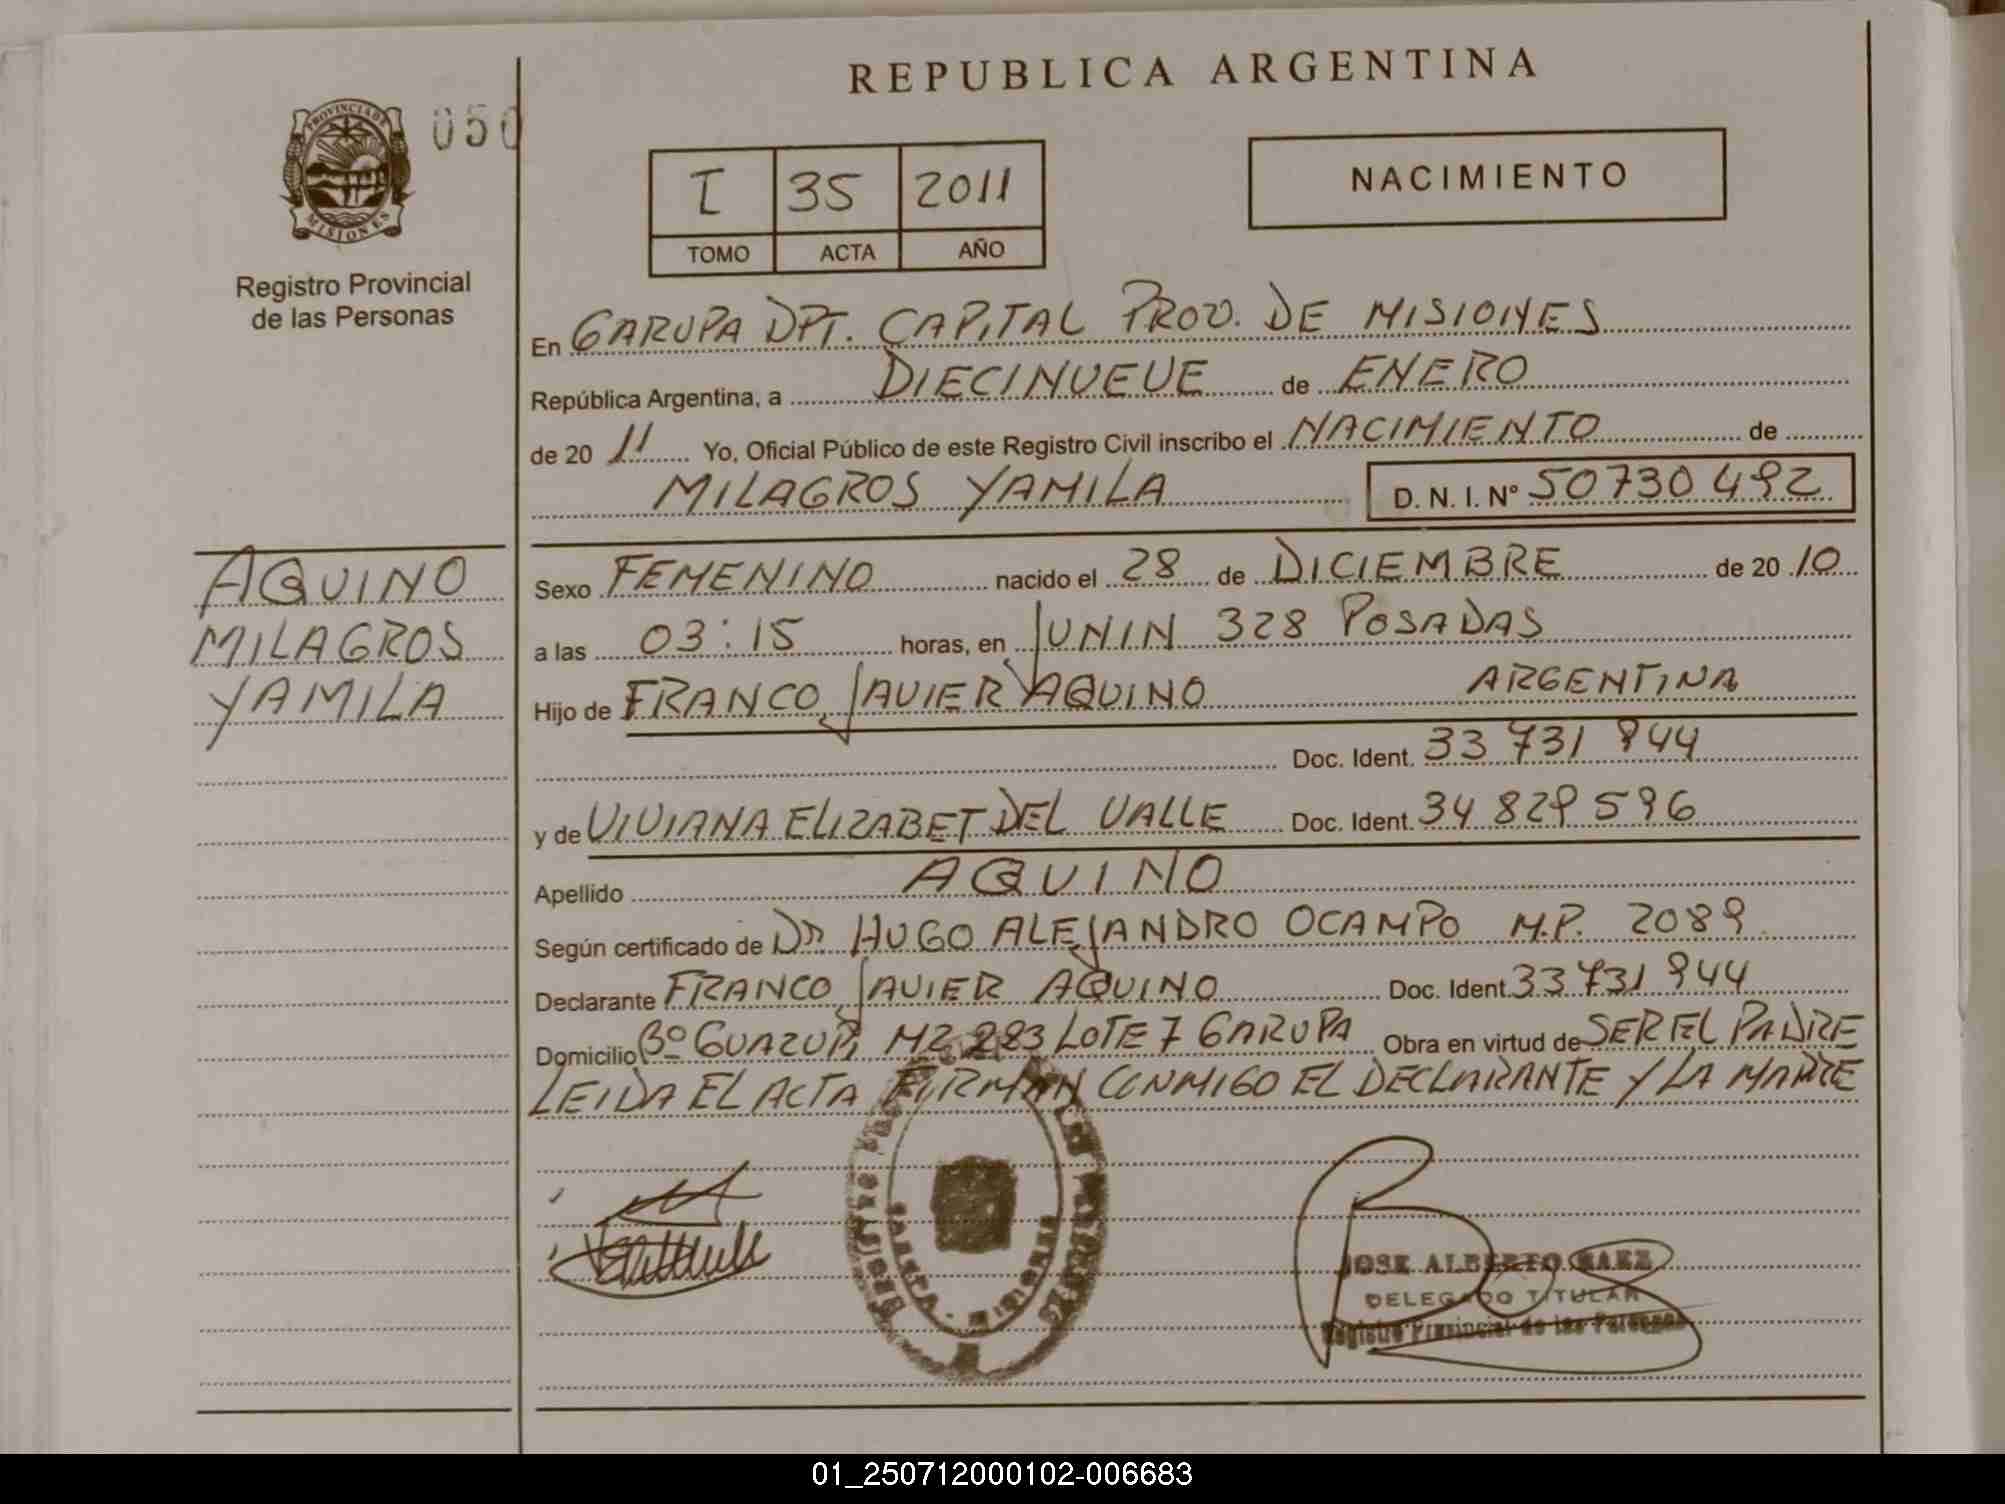 REPUBLICA ARGENTINA
PROVINCIA DE
MISIONES
050
Registro Provincial
de las Personas
I 35 2011
TOMO ACTA AÑO
NACIMIENTO
En GARUPA DPT. CAPITAL PROV. DE MISIONES
República Argentina, a DIECINUEVE de ENERO
de 20 11 Yo, Oficial Público de este Registro Civil inscribo el NACIMIENTO de
MILAGROS YAMILA D. N. I. Nº 50730492
AQUINO
MILAGROS
YAMILA
Sexo FEMENINO nacido el 28 de DICIEMBRE de 20 10
a las 03:15 horas, en JUNIN 328 POSADAS
Hijo de FRANCO JAVIER AQUINO ARGENTINA
Doc. Ident. 33 731 944
y de VIVIANA ELIZABET DEL VALLE Doc. Ident. 34 829 596
Apellido AQUINO
Según certificado de Dr HUGO ALEJANDRO OCAMPO M.P. 2089
Declarante FRANCO JAVIER AQUINO Doc. Ident. 33 731 944
Domicilio Bº GUAZUPI MZ 283 LOTE 7 GARUPA Obra en virtud de SER EL PADRE
LEIDA EL ACTA FIRMAN CONMIGO EL DECLARANTE Y LA MADRE
GARUPA - MISIONES
JOSE ALBERTO BAEZ
DELEGADO TITULAR
Registro Provincial de las Personas
01_250712000102-006683